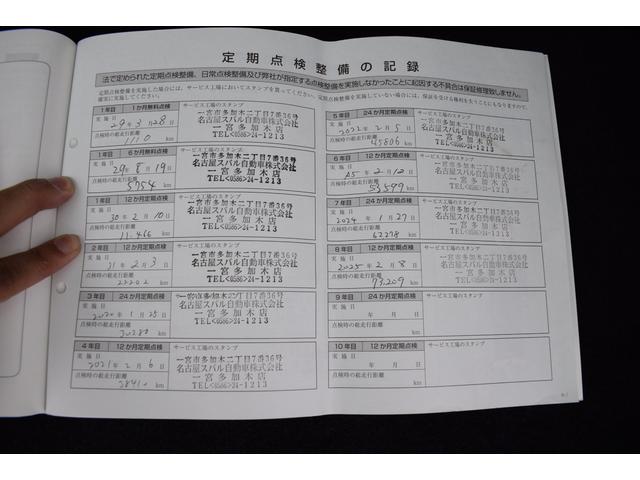 定期点検整備の記録
法で定められた定期点検整備、日常点検整備及び弊社が指定する点検整備を実施しなかったことに起因する不具合は保証修理致しません。
定期点検整備を実施した場合には、サービス工場においてスタンプを貰ってください。定期点検整備を実施していない場合には、保証を受ける権利を失うことにもなりますので、
確実に実施してください。
1年目 1か月無料点検 サービス工場のスタンプ
実施日 29年3月28日
点検時の総走行距離
1110 km
一宮市多加木二丁目7番36号
名古屋スバル自動車株式会社
一宮多加木店
TEL<0586>24-1213
1年目 6か月無料点検 サービス工場のスタンプ
実施日 29年8月19日
点検時の総走行距離
5754 km
一宮市多加木二丁目7番36号
名古屋スバル自動車株式会社
一宮多加木店
TEL<0586>24-1213
1年目 12か月定期点検 サービス工場のスタンプ
実施日 30年2月10日
点検時の総走行距離
11,466 km
一宮市多加木二丁目7番36号
名古屋スバル自動車株式会社
一宮多加木店
TEL<0586>24-1213
2年目 12か月定期点検 サービス工場のスタンプ
実施日 31年2月3日
点検時の総走行距離
km
一宮市多加木二丁目7番36号
名古屋スバル自動車株式会社
一宮多加木店
TEL<0586>24-1213
3年目 24か月定期点検 サービス工場のスタンプ
実施日 2020年1月25日
点検時の総走行距離
30280 km
一宮市多加木二丁目7番36号
名古屋スバル自動車株式会社
一宮多加木店
TEL<0586>24-1213
4年目 12か月定期点検 サービス工場のスタンプ
実施日 2021年2月6日
点検時の総走行距離
km
一宮市多加木二丁目7番36号
名古屋スバル自動車株式会社
一宮多加木店
TEL<0586>24-1213
5年目 24か月定期点検 サービス工場のスタンプ
実施日 2022年2月5日
点検時の総走行距離
45806 km
一宮市多加木二丁目7番36号
名古屋スバル自動車株式会社
一宮多加木店
TEL<0586>24-1213
6年目 12か月定期点検 サービス工場のスタンプ
実施日 R5年2月12日
点検時の総走行距離
km
一宮市多加木二丁目7番36号
名古屋スバル自動車株式会社
一宮多加木店
TEL<0586>24-1213
7年目 24か月定期点検 サービス工場のスタンプ
実施日 2024年1月27日
点検時の総走行距離
62278 km
一宮市多加木二丁目7番36号
名古屋スバル自動車株式会社
一宮多加木店
TEL<0586>24-1213
8年目 12か月定期点検 サービス工場のスタンプ
実施日 2025年2月8日
点検時の総走行距離
73,209 km
一宮市多加木二丁目7番36号
名古屋スバル自動車株式会社
一宮多加木店
TEL<0586>24-1213
9年目 24か月定期点検 サービス工場のスタンプ
実施日 年 月 日
点検時の総走行距離
km
10年目 12か月定期点検 サービス工場のスタンプ
実施日 年 月 日
点検時の総走行距離
km